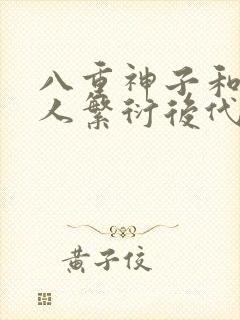 八重神子和
人繁衍後代
黃子佼